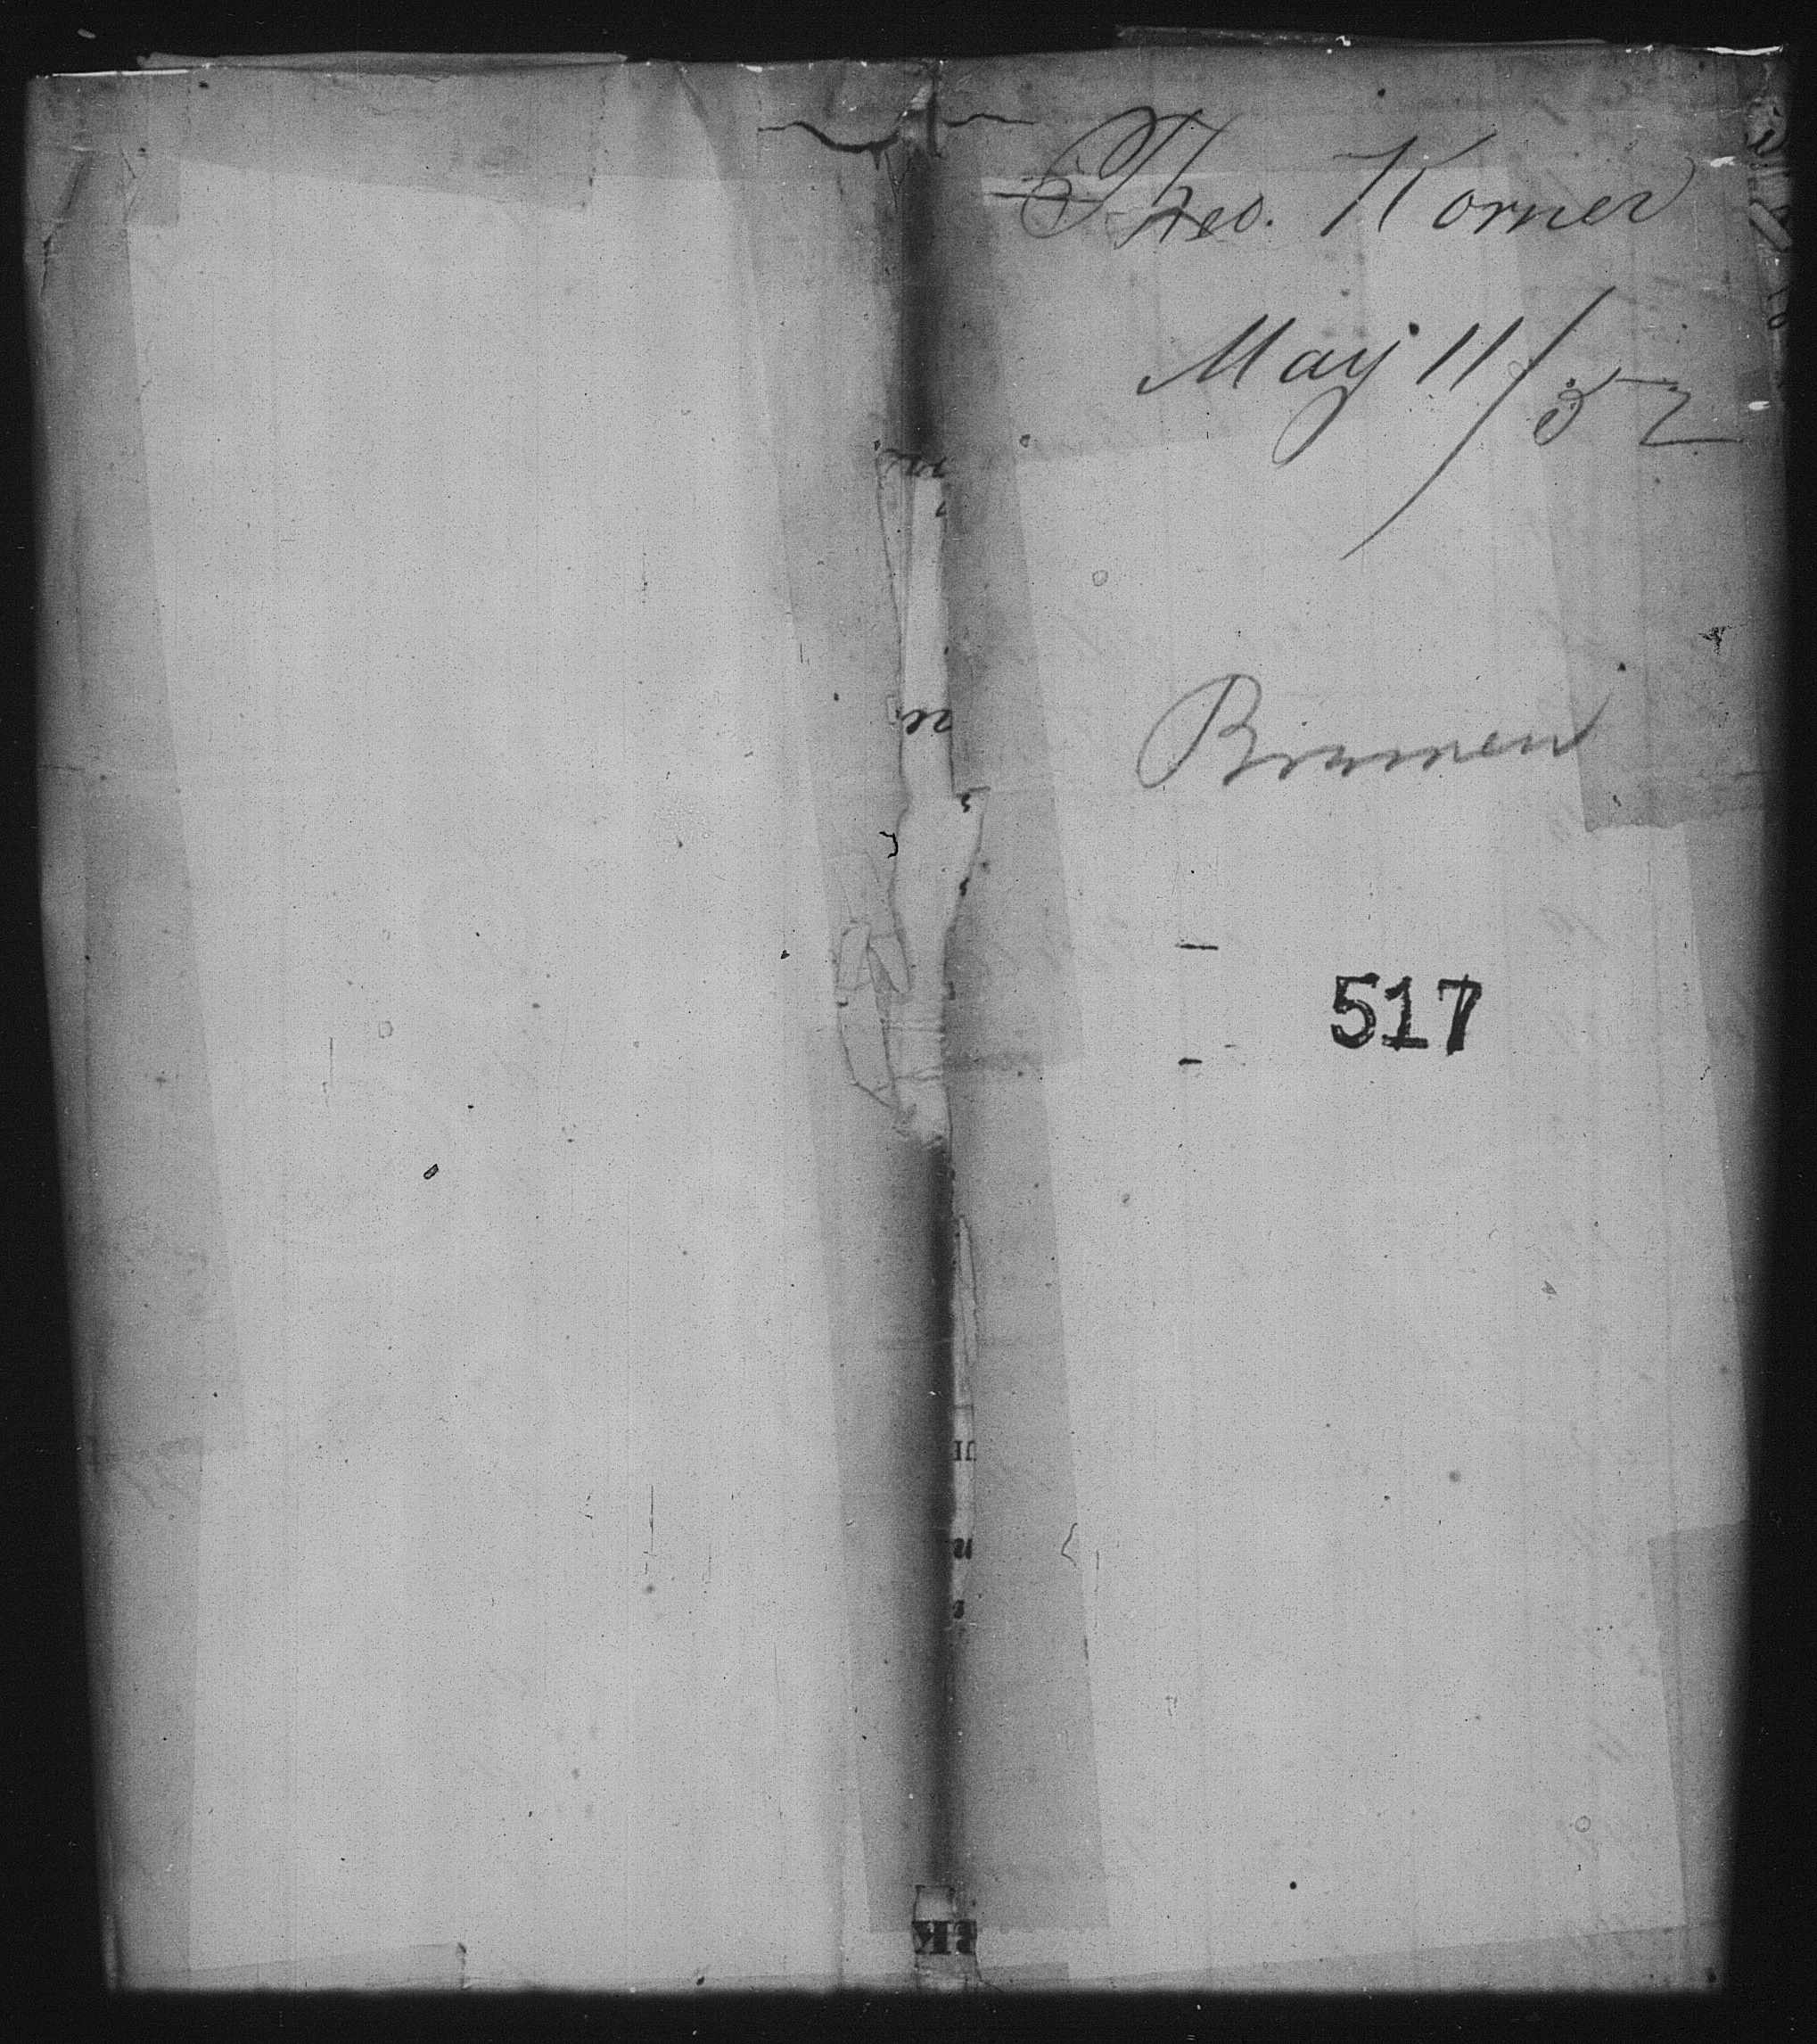 Theo. Korner
May 11/52
Bremen
517